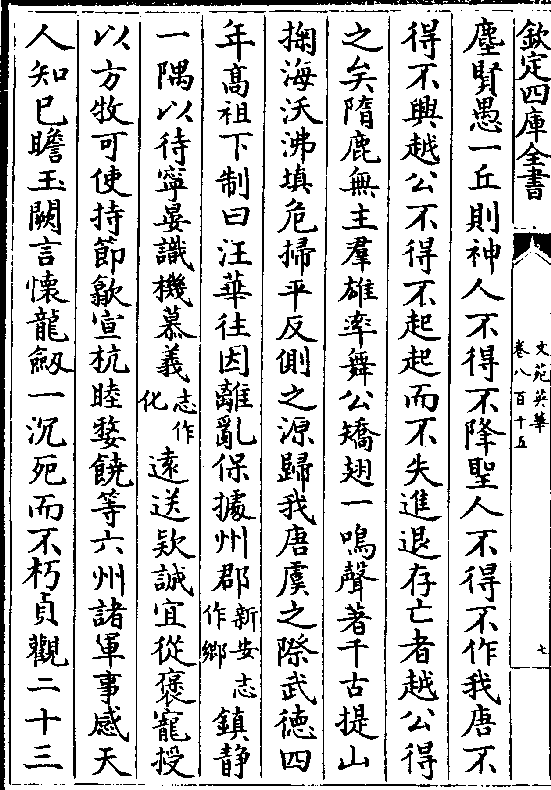 欽定四庫全書
文苑英華
卷八百十五
七
塵賢愚一丘則神人不得不降聖人不得不作我唐不
得不興越公不得不起起而不失進退存亡者越公得
之矣隋鹿無主羣雄率舞公矯翅一鳴聲著千古提山
掬海沃沸填危掃平反側之源歸我唐虞之際武徳四
年髙祖下制曰汪華往因離亂保據州郡新安志作鄉鎮静
一隅以待寧晏識機慕義志作化逺送欵誠宜從褒寵授
以方牧可使持節歙宣杭睦婺饒等六州諸軍事感天
人知已瞻玉闕言懷龍劔一沉死而不朽貞觀二十三